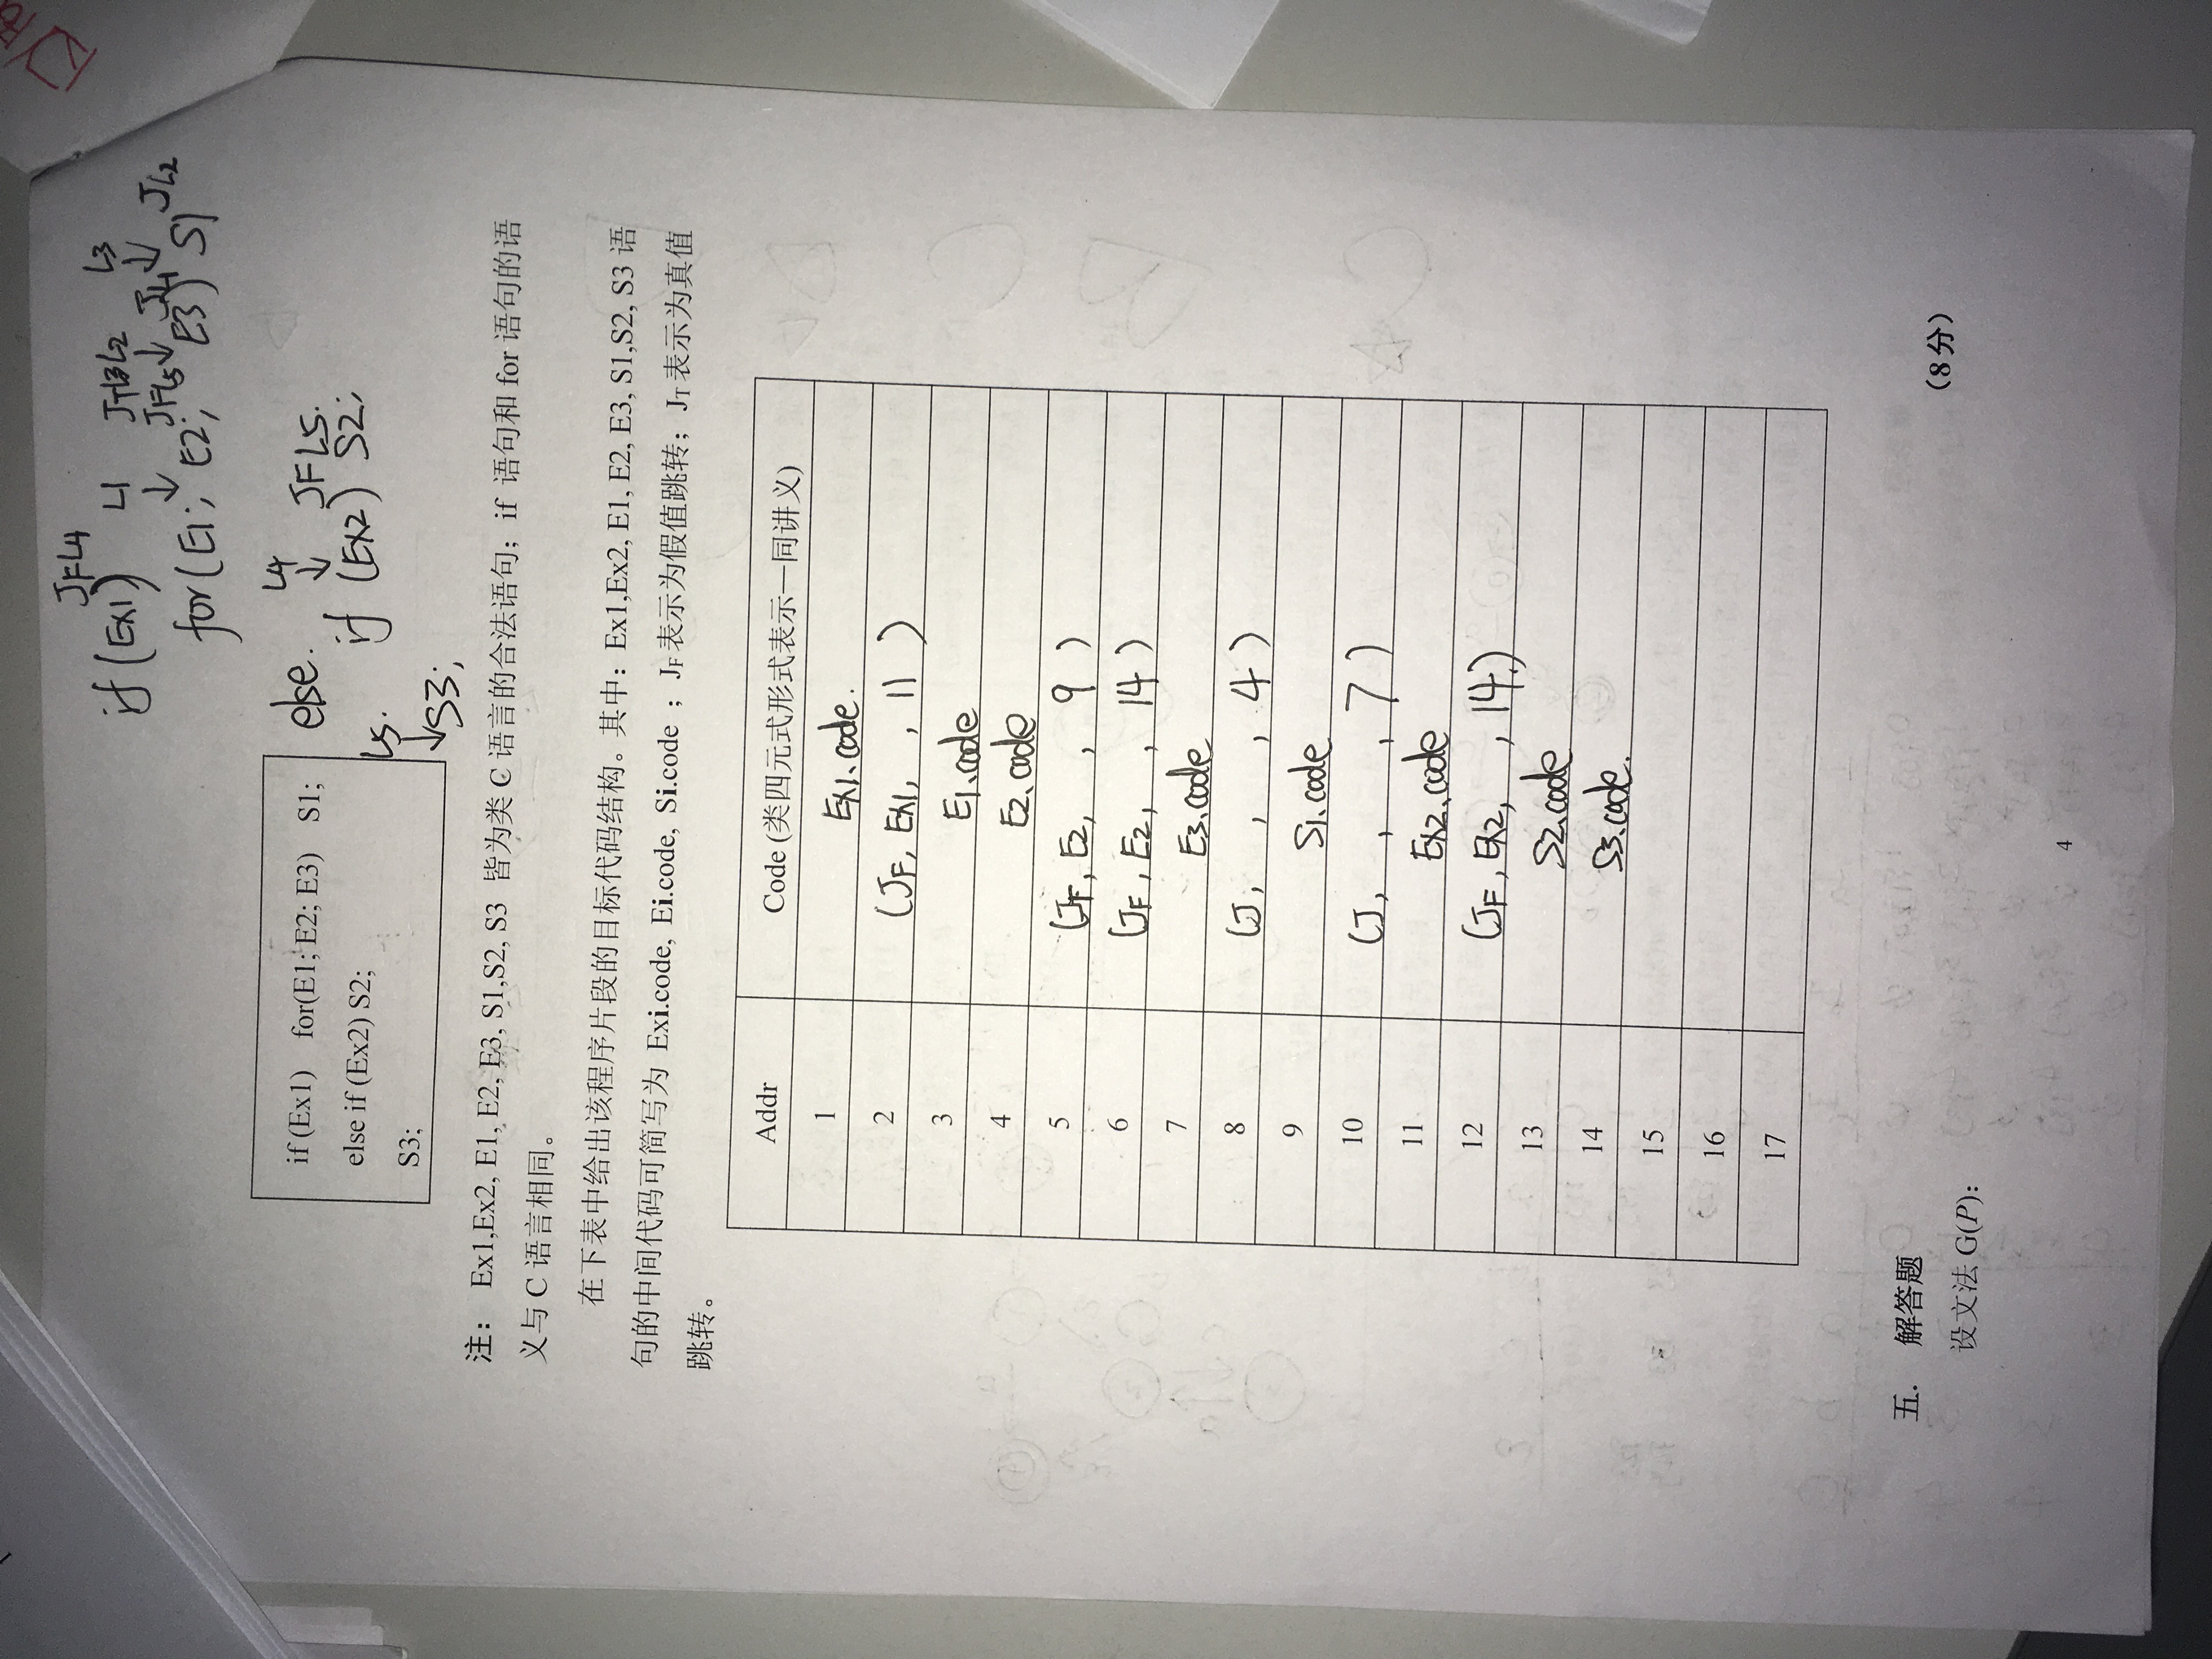 if (Ex1) JFL4
L1 JTL2 L3
JFL5 JL1 JL2
for (E1; E2; E3) S1
else.
L4 JFL5.
if (Ex2) S2;
L5.
S3;
if (Ex1) for(E1; E2; E3) S1;
else if (Ex2) S2;
S3;
注： Ex1,Ex2, E1, E2, E3, S1,S2, S3 皆为类 C 语言的合法语句；if 语句和 for 语句的语
义与 C 语言相同。
在下表中给出该程序片段的目标代码结构。其中：Ex1,Ex2, E1, E2, E3, S1,S2, S3 语
句的中间代码可简写为 Exi.code, Ei.code, Si.code ；JF 表示为假值跳转；JT 表示为真值
跳转。
Addr Code (类四元式形式表示一同讲义)
1 Ex1.code.
2 (JF, Ex1, , 11 )
3 E1.code
4 E2.code
5 (JF, E2, , 9 )
6 (JF, E2, , 14 )
7 E3.code
8 (J, , , 4 )
9 S1.code
10 (J, , , 7 )
11 Ex2.code
12 (JF, Ex2, , 14.)
13 S2.code
14 S3.code.
15
16
17
五. 解答题 (8 分)
设文法 G(P):
4